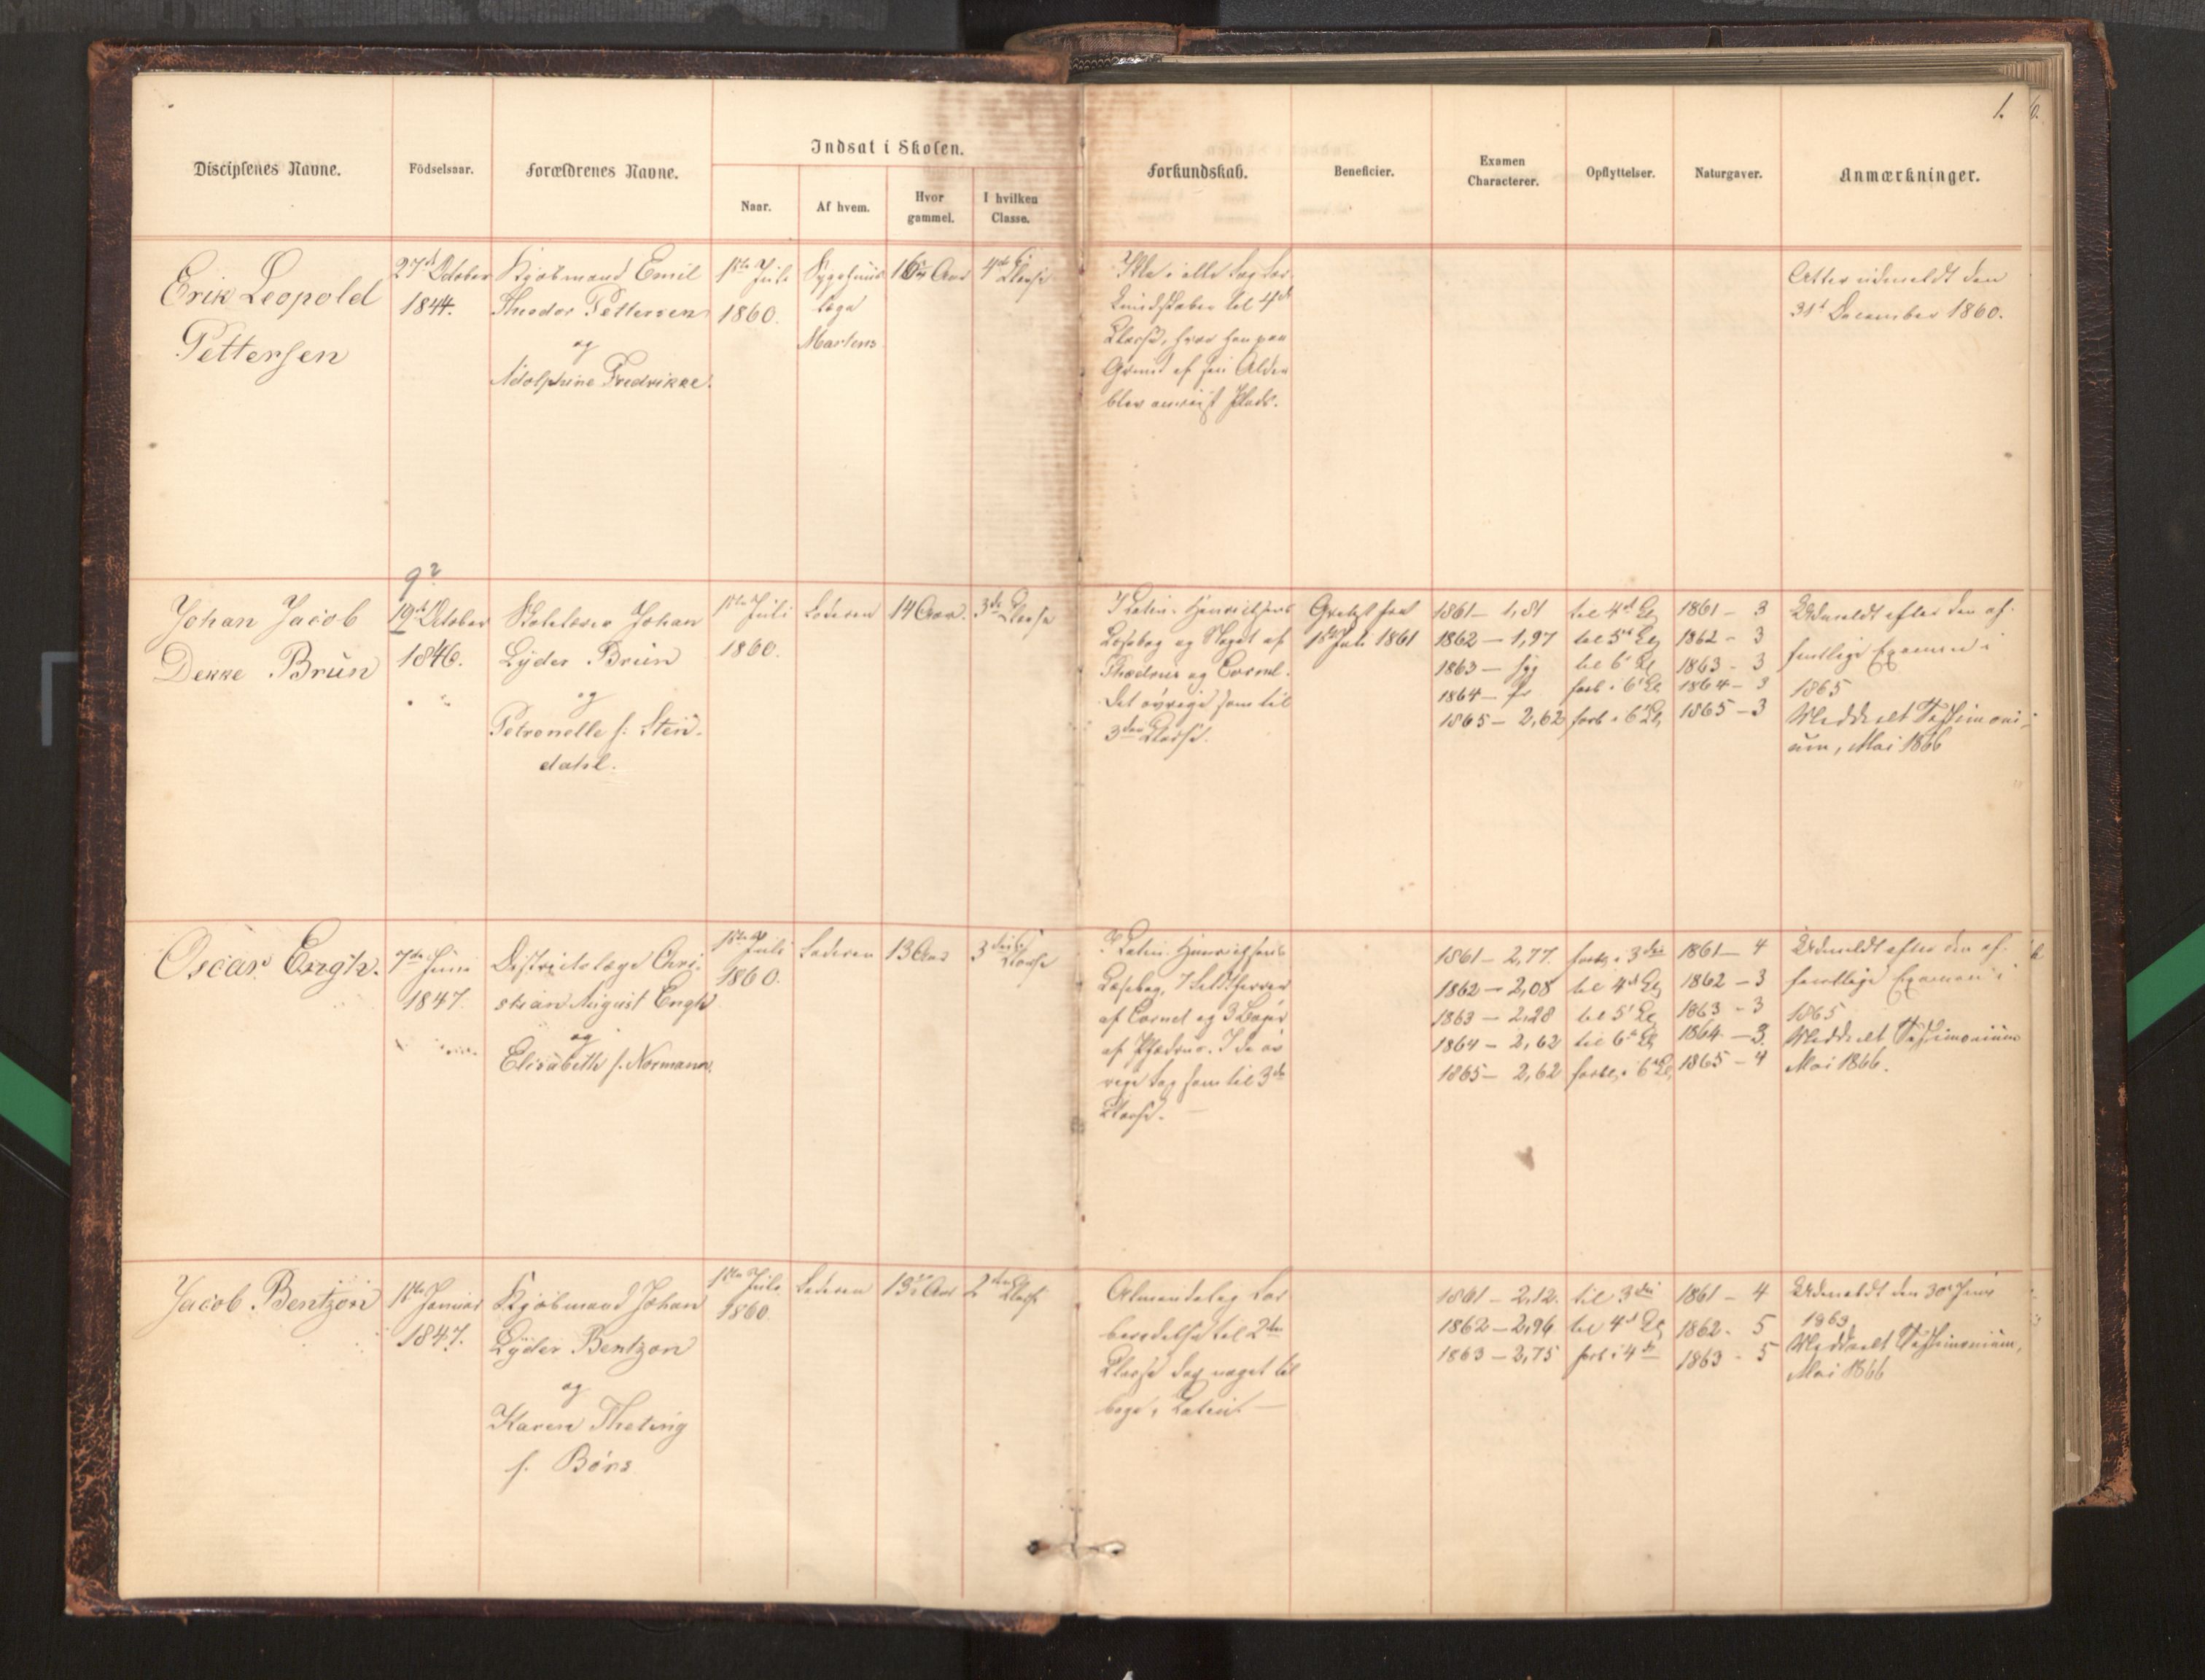 1.
Disciplenes Navne.
Födselsaar.
Forældrenes Navne.
Indsat i Skolen.
Naar.
Af hvem.
Hvor
gammel.
I hvilken
Classe.
Forkundskab.
Beneficier.
Examen
Characterer.
Opflyttelser.
Naturgaver.
Anmærkninger.
Erik Leopold
Pettersen
27d October
1844.
Kjøbmand Emil
Theodor Pettersen
og
Adolphine Fredrikke.
1ste Juli
1860.
læge
Martens
Aar
4de Classe
Ikke i alle Fag For-
kundskaber til 4de
Classe, hvor han paa
Grund af sin Alder
blev anvist Plads.
Atter udmeldt den
31te December 1860.
Johan Jacob
Dekke Brun
9?
19de October
1846.
Skolelærer Johan
Lyder Brun
og
Petronelle f: Sten-
dahl.
1ste Juli
1860.
Faderen
14 Aar.
3de Classe
I Latin: Henrichsens
Læsebog og Noget af
Phædrus og Cornel.
Det øvrige som til
3die Classe.
fra
1ste Juli 1861
1861 – 1,81
1862 – 1,97
1863 – syg
1864 –
1865 – 2,62
til 4de Cl.
til 5te Cl.
til 6te Cl.
forb. i 6te Cl.
forb. i 6te Cl.
1861 – 3
1862 – 3
1863 – 3
1864 – 3
1865 – 3
Udmeldt efter den of-
fentlige Examen i
1865
Meddeelt Testimoni-
um, Mai 1866
Oscar Engh.
7de Juni
1847.
Districtslæge Chri-
stian August Engh
og
Elisabeth f. Normann.
1ste Juli
1860.
Faderen
13 Aar
3die Classe
I Latin: Henrichsens
Læsebog, 7 Feltherrer
af Cornel og 3 Bøger
af Phædrus. I de øv-
rige Fag som til 3die
Classe. –
1861 – 2,77.
1862 – 2,08
1863 – 2,28
1864 – 2,62
1865 – 2,62
forb. i 3die
til 4de Cl.
til 5te Cl.
til 6te Cl.
forbl. i 6te Cl.
1861 – 4
1862 – 3
1863 – 3
1864 – 3.
1865 – 4
Udmeldt efter den of-
fentlige Examen i
1865
Meddeelt Testimonium
Mai 1866.
Jacob Bentzon
1ste Januar
1847.
Kjøbmand Johan
Lyder Bentzon
og
Karen Theting
f. Børs
1ste Juli
1860
Faderen
13½ Aar
2den Classe
Almindelig For-
beredelse til 2den
Classe dog noget til-
bage i Latin. –
1861 – 2,12.
1862 – 2,94
1863 – 2,75
til 3die
til 4de Cl.
forb. i 4de
1861 – 4
1862 - 5
1863 - 5
Udmeldt den 30te Juni
1863
Meddeelt Testimonium,
Mai 1866